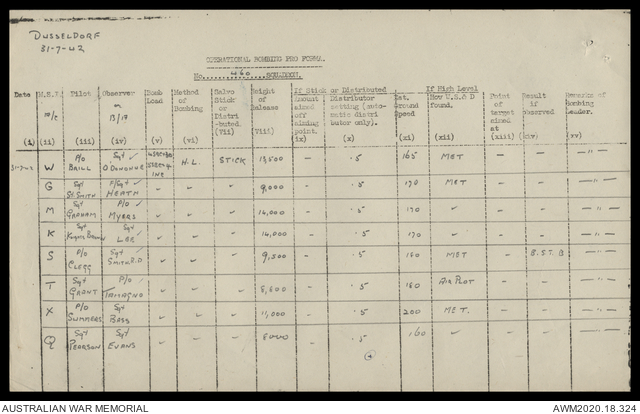 DUSSELDORF
31-7-42
OPERATIONAL BOMBING PRO FORMA.
No. 460 SQUADRON.
Date Pilot Observer Bomb Load Method of Bombing Salvo Stick or Distributed. Height of Release If Stick or Distributed Est. Ground Speed If High Level Point of target aimed at Result if observed Remarks of Bombing Leader.
Amount aimed off aiming point. Distributor setting (automatic distributor only). How U.S.& D found.
(i) (ii) (iii) (iv) (v) (vi) (vii) (viii) (ix) (x) (xi) (xii) (xiii) (xiv) (xv)
31-7-42 W P/O BRILL Sgt O'DONOHUE H.L. STICK 13,500 - .5 165 MET - -
G Sgt St.SMITH F/Sgt HEATH 9,000 - .5 170 MET - - - " -
M Sgt GRAHAM P/O MYERS 14,000 - .5 190 - - - " -
K Sgt Sgt LEE 14,000 - .5 170 - - - " -
S P/O CLEGG Sgt SMITH R.D 9,500 - .5 180 MET - - " -
T Sgt GRANT P/O TAMAGNO - .5 180 AIR PLOT - - - " -
X P/O SUMMERS Sgt BASS 11,000 - .5 200 MET. - - - " -
Q Sgt PEARSON Sgt EVANS - .5 160 - - - " -
AUSTRALIAN WAR MEMORIAL
AWM2020.18.324